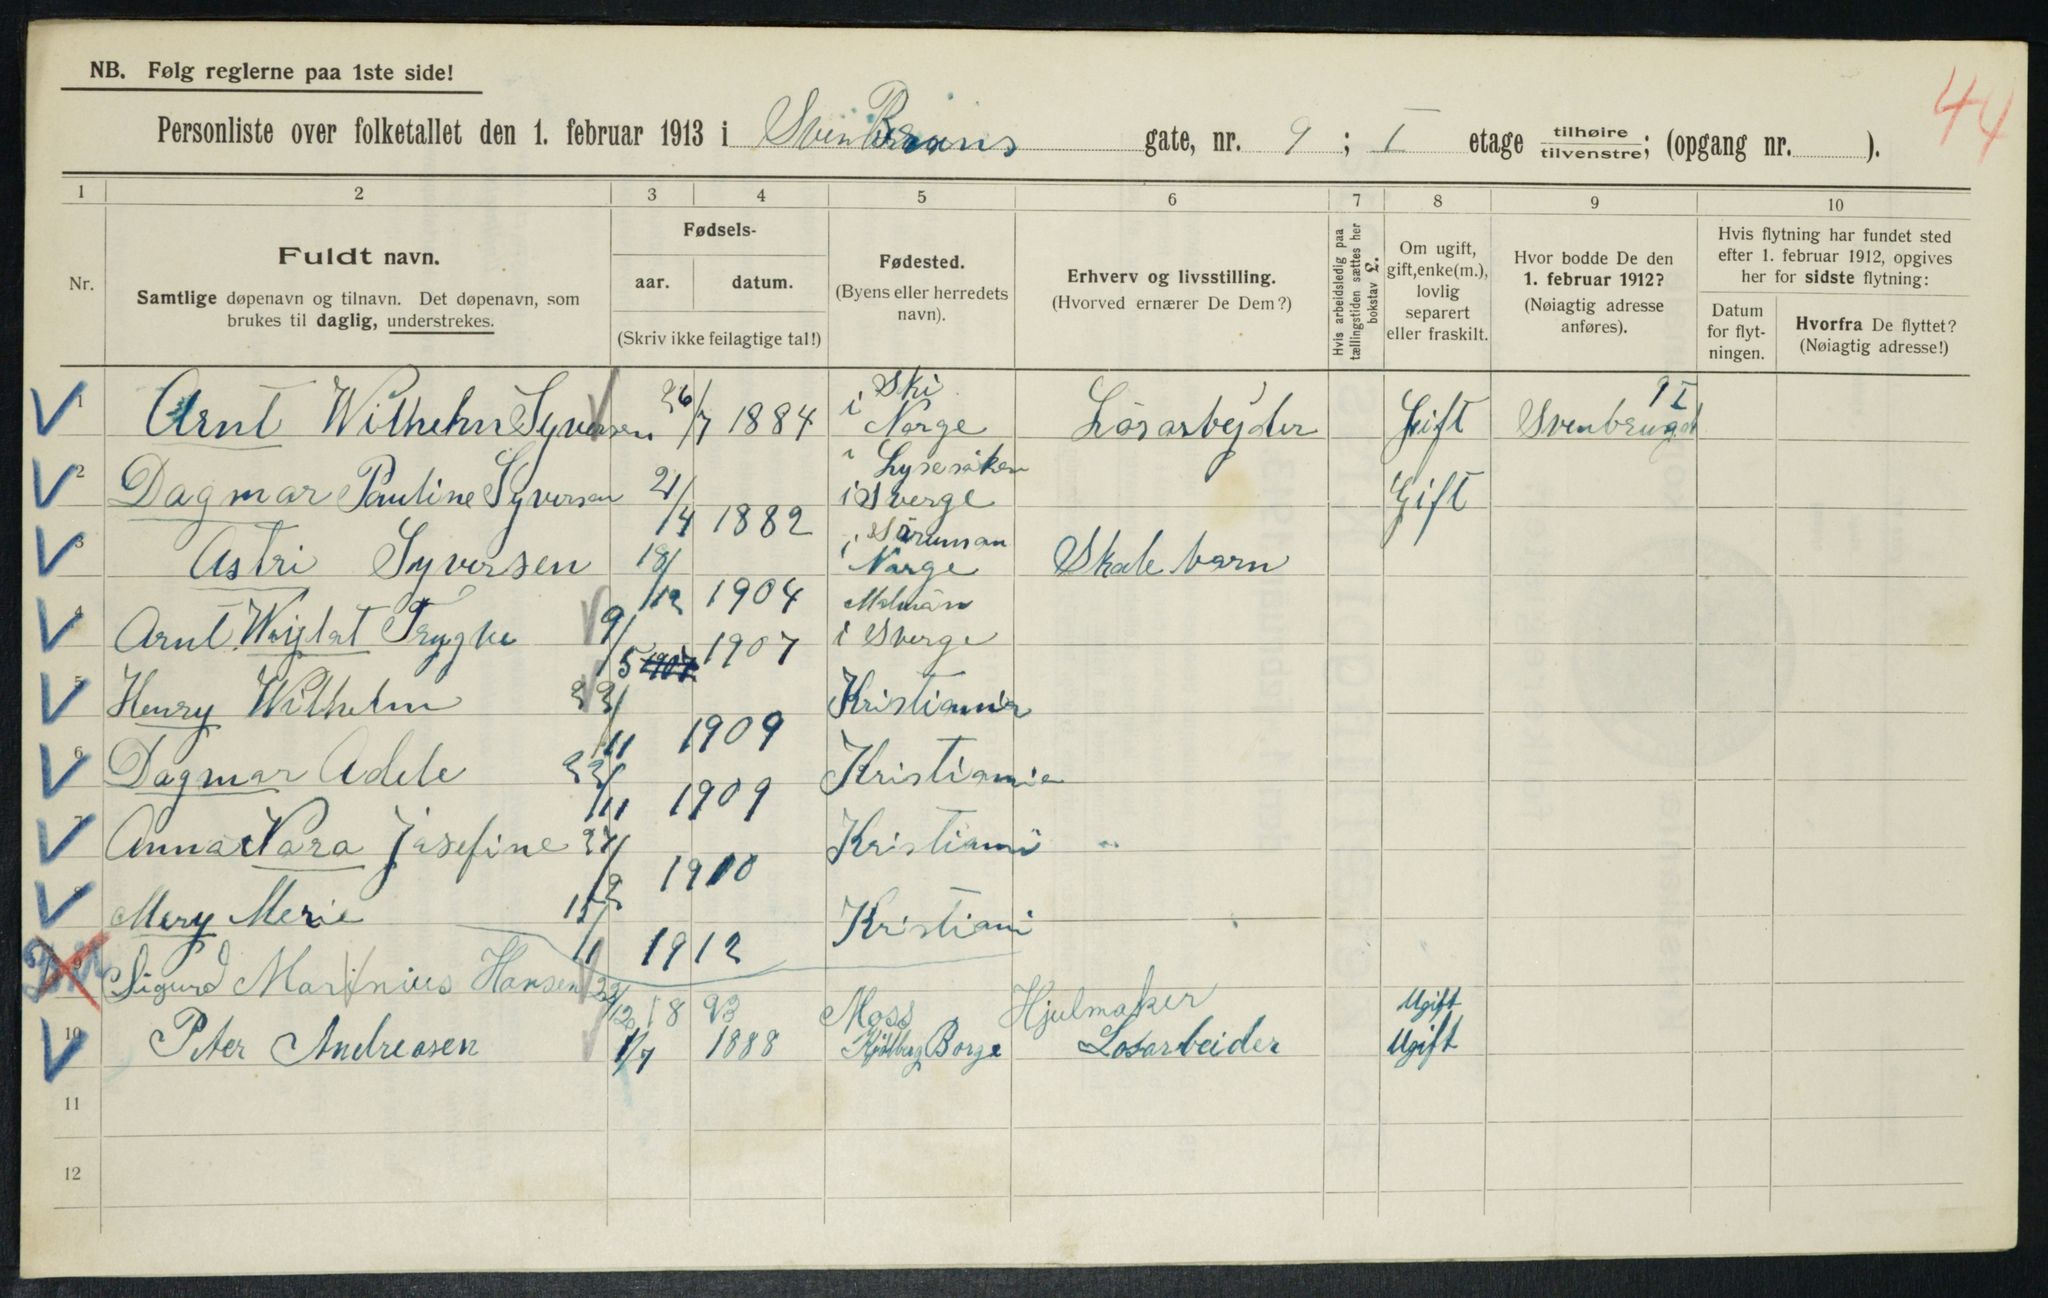 NB. Følg reglerne paa 1ste side!
44
Personliste over folketallet den 1. februar 1913 i Svenbruns gate, nr. 9 ; I etage tilhøire / tilvenstre; (opgang nr. ).
1 2 3 4 5 6 7 8 9 10
Nr.
Fuldt navn.
Samtlige døpenavn og tilnavn. Det døpenavn, som
brukes til daglig, understrekes.
Fødsels-
aar. datum.
(Skriv ikke feilagtige tal!)
Fødested.
(Byens eller herredets
navn).
Erhverv og livsstilling.
(Hvorved ernærer De Dem?)
Hvis arbeidsledig paa
tællingstiden sættes her
bokstav £.
Om ugift,
gift, enke(m.),
lovlig
separert
eller fraskilt.
Hvor bodde De den
1. februar 1912?
(Nøiagtig adresse
anføres).
Hvis flytning har fundet sted
efter 1. februar 1912, opgives
her for sidste flytning:
Datum
for flyt-
ningen.
Hvorfra De flyttet?
(Nøiagtig adresse!)
1 Arnt Wilhelm Syversen 26/7 1884 i Ski Norge Lösarbejder Gift Svenbrugd 9 I
2 Dagmar Pauline Syversen 21/4 1882 i Lysesiken i Sverge Gift
3 Astri Syversen 18/12 1904 i Sörumsan Norge Skole barn
4 Arnt Waiglat Trygve 9/5 1907 1907 Malmön i Sverge
5 Henry Wilhelm 22/11 1909 Kristiania
6 Dagmar Adele 22/11 1909 Kristiania
7 Anna Nora Josefine 27/2 1910 Kristiani
8 Mary Merie 15/1 1912 Kristiani
9 Sigurd Marinius Hansen 22/12 1893 Moss Hjulmaker Ugift
10 Peter Andreasen 1/7 1888 Kjölberg Borge Losarbeider Ugift
11
12